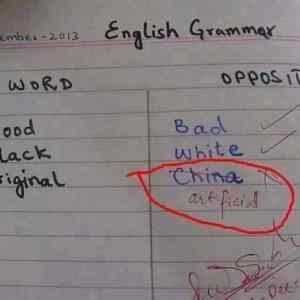 ember-2013 English Grammar
WORD OPPOSIT
ood Bad
lack White
riginal China
artificial